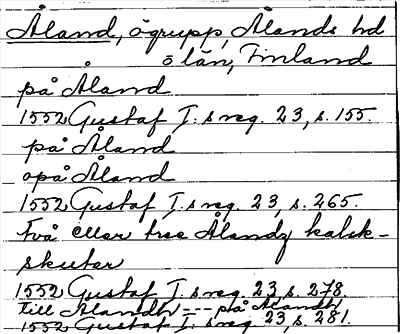 Åland, ögrupp, Ålands hd
o län, Finland
på Åland
1552 Gustaf I:s reg. 23, s. 155.
på Åland
opå Åland
1552 Gustaf I:s reg. 23, s. 265.
två eller tree Ålandz kalck-
skuter
1552 Gustaf I:s reg. 23, s. 278
till Ålandh --- på Ålandh
1552 Gustaf I:s reg. 23, s. 281.